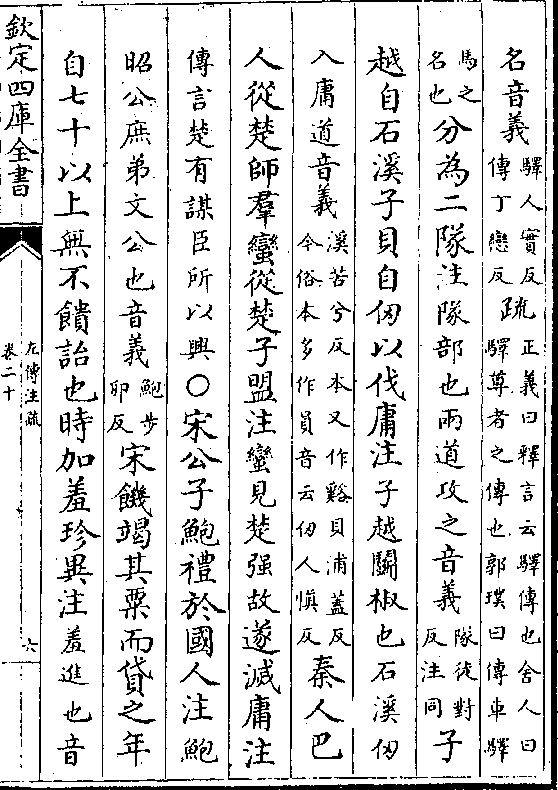 名音義驛人實反傳丁戀反疏正義曰釋言云驛傳也舍人曰驛尊者之傳也郭璞曰傳車驛
馬之名也分為二隊注隊部也兩道攻之音義隊徒對反注同子
越自石溪子貝自仞以伐庸注子越鬬椒也石溪仞
入庸道音義溪苦兮反本又作谿貝浦蓋反今俗本多作員音云仞人慎反秦人巴
人從楚師羣蠻從楚子盟注蠻見楚强故遂滅庸注
傳言楚有謀臣所以興○宋公子鮑禮於國人注鮑
昭公庶弟文公也音義鮑步卯反宋饑竭其粟而貸之年
自七十以上無不饋詒也時加羞珍異注羞進也音
欽定四庫全書
左傳注疏
卷二十
六